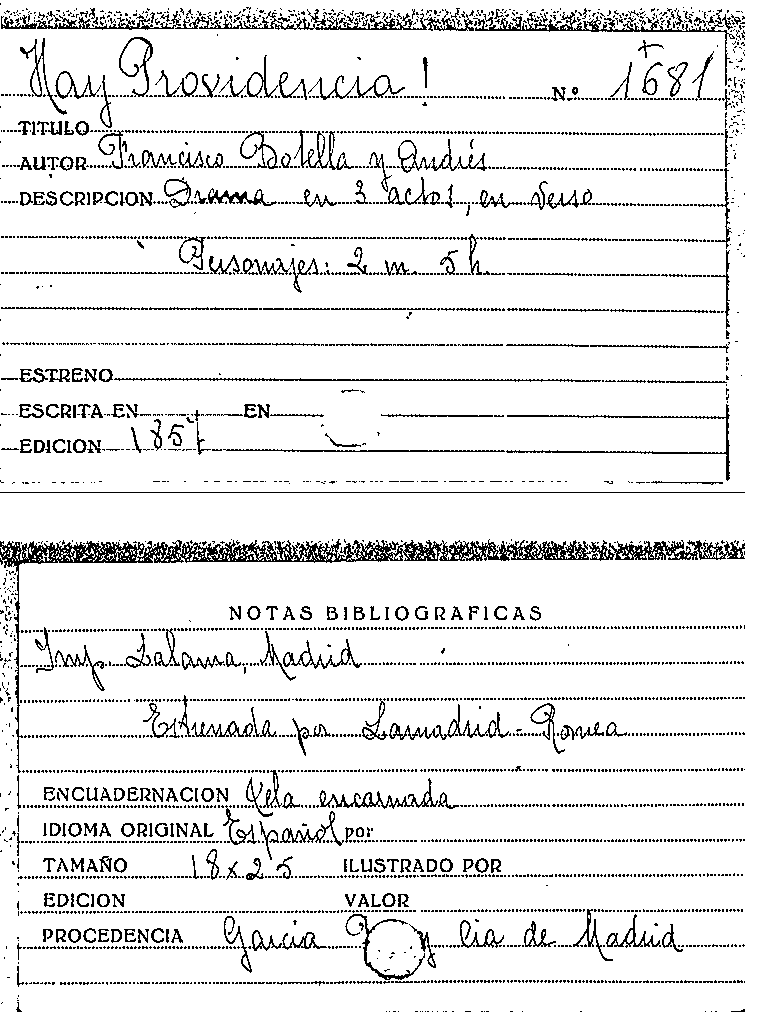 Hay Providencia!
N.º 1681
TITULO
AUTOR Francisco Botella y Andrés
DESCRIPCION Drama en 3 actos, en verso
Personajes: 2 m. 5 h.
ESTRENO
ESCRITA EN EN
EDICION 1857
NOTAS BIBLIOGRAFICAS
Imp. Lalama, Madrid
Estrenada por Lamadrid - Romea
ENCUADERNACION Tela encarnada
IDIOMA ORIGINAL Español por
TAMAÑO 18 x 25 ILUSTRADO POR
EDICION VALOR
PROCEDENCIA Garcia y Cia de Madrid